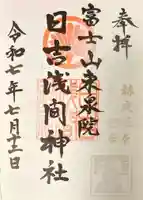 奉拝
富士山東泉院
日吉浅間神社
令和七年七月十二日